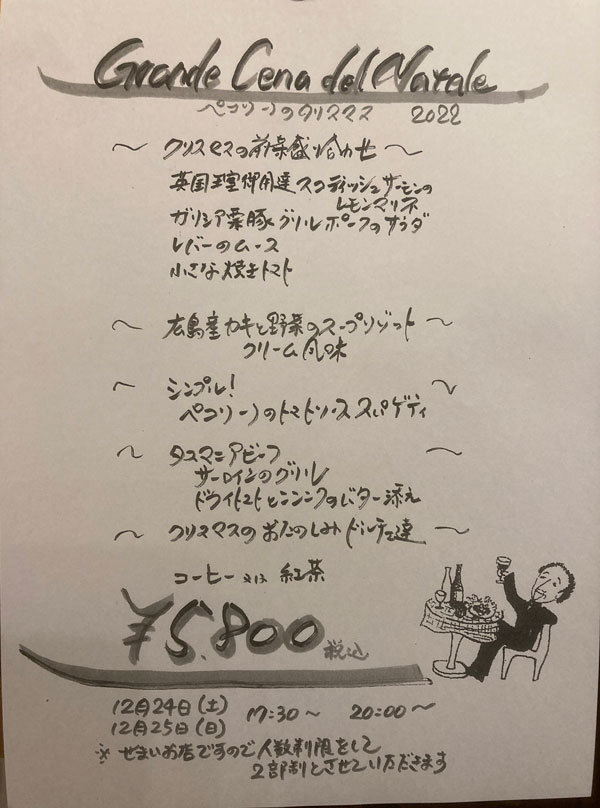 Grande Cena del Natale
ペコリーノのクリスマス 2022
～ クリスマスの前菜盛り合わせ ～
英国王室御用達スコティッシュサーモンの
レモンマリネ
ガリシア栗豚グリルポークのサラダ
レバーのムース
小さな焼きトマト
～ 広島産カキと野菜のスープリゾット ～
クリーム風味
～ シンプル! ～
ペコリーノのトマトソーススパゲティ
～ タスマニアビーフ ～
サーロインのグリル
ドライトマトとニンニクのバター添え
～ クリスマスのおたのしみドルチェ達 ～
コーヒー 又は 紅茶
¥5,800 税込
12月24日(土)
12月25日(日) 17:30～ 20:00～
※ せまいお店ですので人数制限をして
2部制とさせていただきます